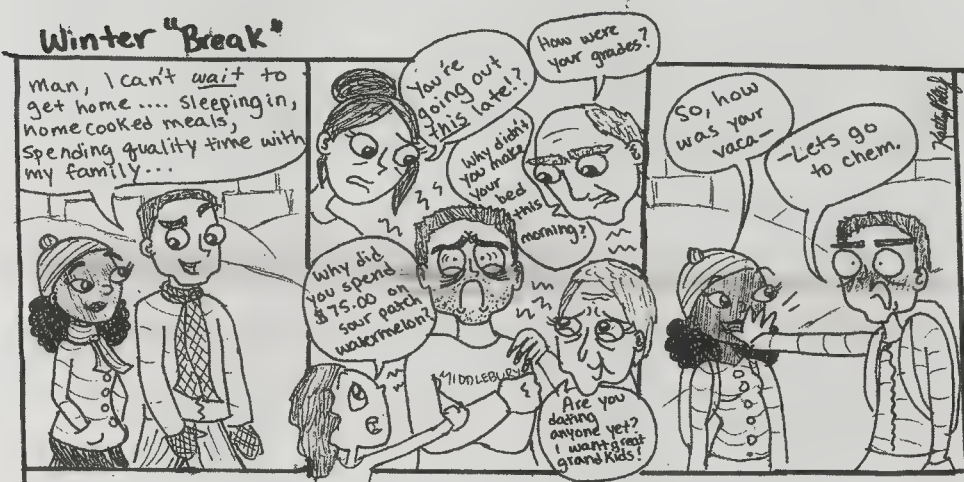 Winter "Break"
man, I can't wait to
get home .... sleeping in,
home cooked meals,
spending quality time with
my family...
You're
going out
this late!?
How were
your grades?
Why didn't
you make
your
bed
this
morning?
Why did
you spend
$75.00 on
sour patch
watermelon?
MIDDLEBURY
Are you
dating
anyone yet?
I want great
grandkids!
So, how
was your
vaca—
—Lets go
to chem.